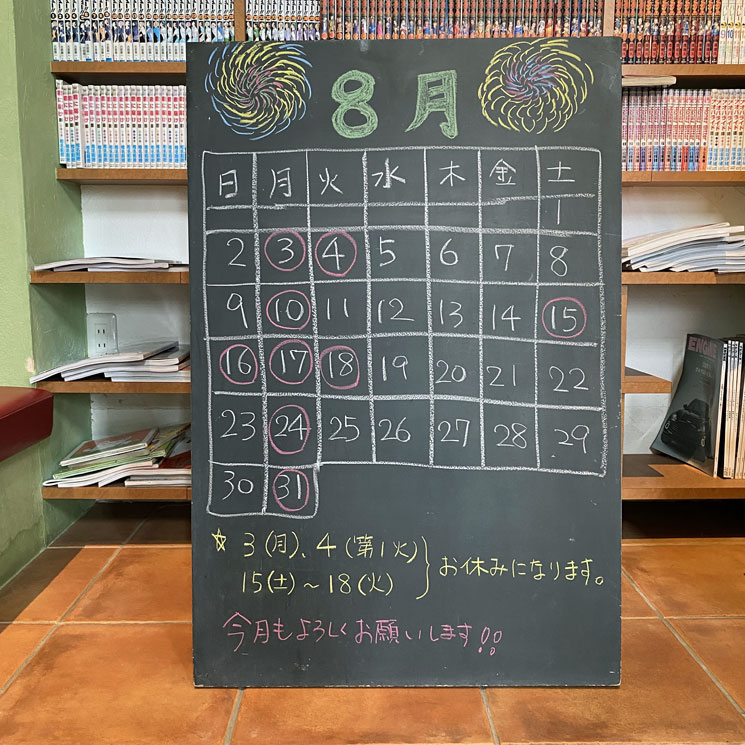 8月
日 月 火 水 木 金 土
1
2 3 4 5 6 7 8
9 10 11 12 13 14 15
16 17 18 19 20 21 22
23 24 25 26 27 28 29
30 31
☆ 3(月)、4(第1火)
15(土)～18(火) } お休みになります。
今月もよろしくお願いします!!
ENGINE